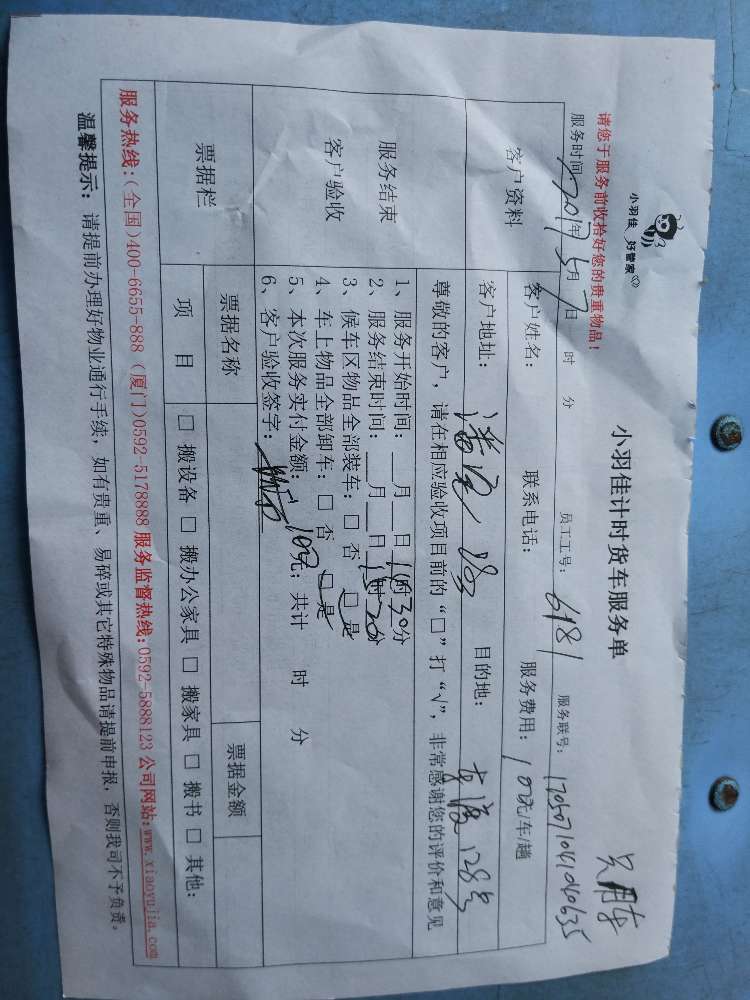 小羽佳 好管家
小羽佳计时货车服务单
只用车
请您于服务前收拾好您的贵重物品！
服务时间: 2017年5月7日 时 分 员工工号: 6181 服务联号: 1705071041040635
客户资料
客户姓名: 联系电话: 服务费用: 100元/车/趟
客户地址: 目的地: 128号
服务结束
客户验收
尊敬的客户，请在相应验收项目前的“□”打“√”，非常感谢您的评价和意见
1、服务开始时间: 月 日 时30分
2、服务结束时间: 月 日 时20分
3、候车区物品全部装车: □ 否 □ 是
4、车上物品全部卸车: □ 否 □ 是
5、本次服务实付金额: 100元; 共计 时 分
6、客户验收签字:
票据栏
票据名称 票据金额
项 目 □ 搬设备 □ 搬办公家具 □ 搬家具 □ 搬书 □ 其他:
服务热线:(全国)400-6655-888 (厦门)0592-5178888 服务监督热线:0592-5888123 公司网站:www.xiaoyujia.com
温馨提示: 请提前办理好物业通行手续，如有贵重、易碎或其它特殊物品请提前申报，否则我司不予负责。